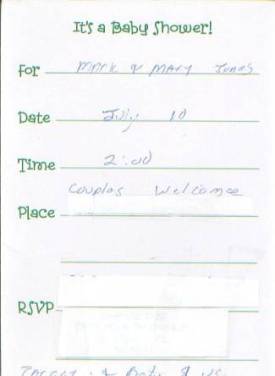 It's a Baby Shower!
For Mark & Mary
Date July 10
Time 2:00
Couples Welcome
Place
RSVP